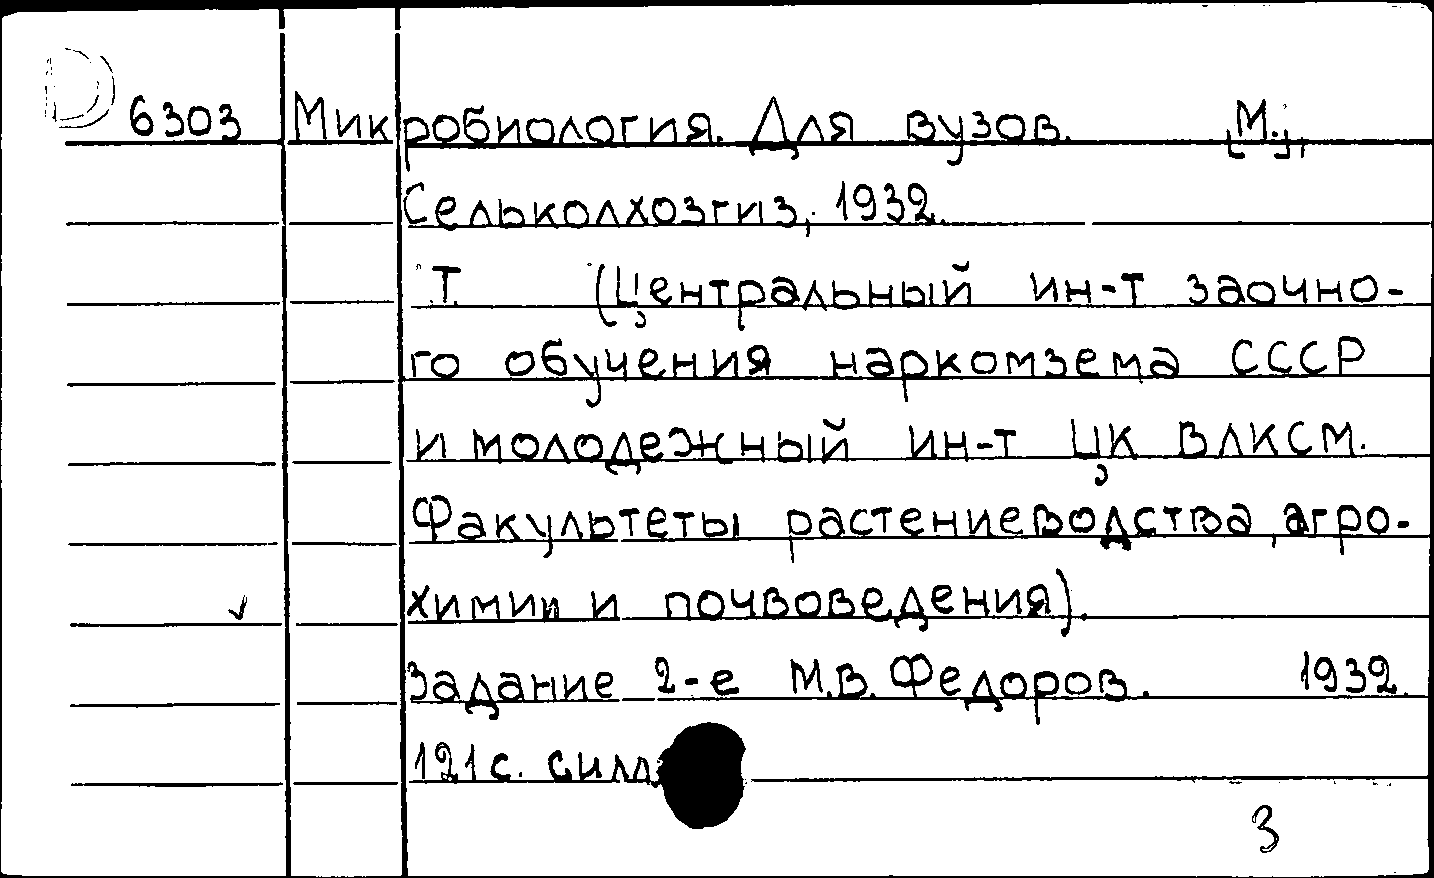 D 6303 Микробиология. Для вузов. [М.],
Сельколхозгиз, 1932.
Т. (Центральный ин-т заочно-
го обучения наркомзема СССР
и молодежный ин-т ЦК ВЛКСМ.
Факультеты растениеводства, агро-
химии и почвоведения).
Задание 2-е М.В. Федоров. 1932.
121 с. с илл.
3